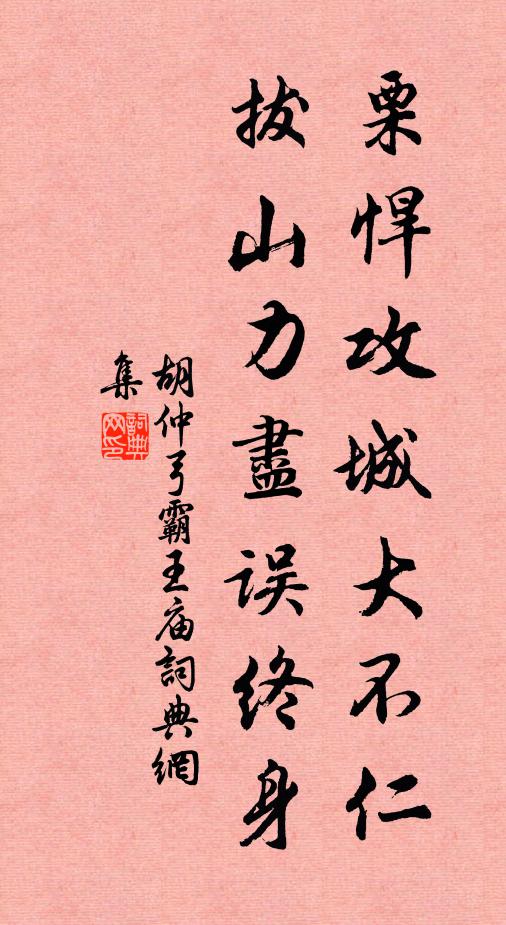 栗悍攻城大不仁
拔山力盡误终身
胡仲弓霸王庙詞典網
集
詞典網印